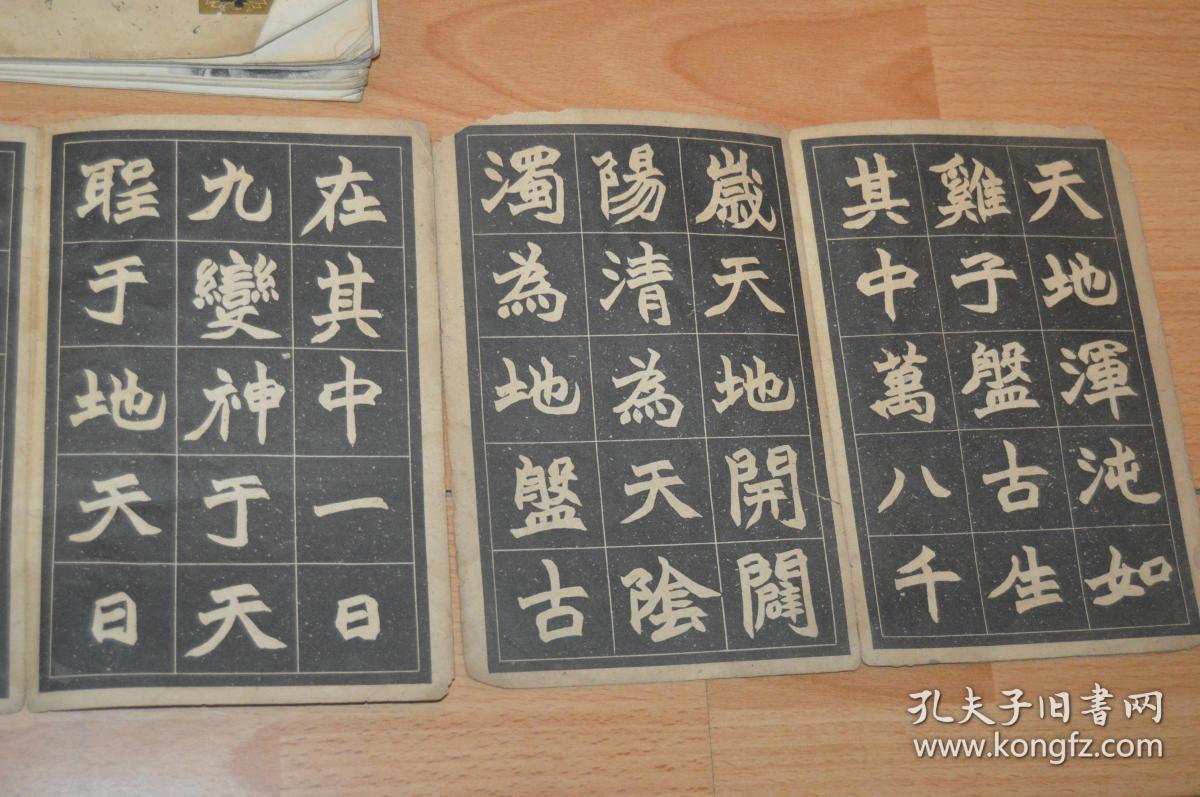 天地渾沌如
雞子盤古生
其中萬八千
歲天地開闢
陽清為天陰
濁為地盤古
在其中一日
九變神于天
聖于地天日
孔夫子旧書网
www.kongfz.com